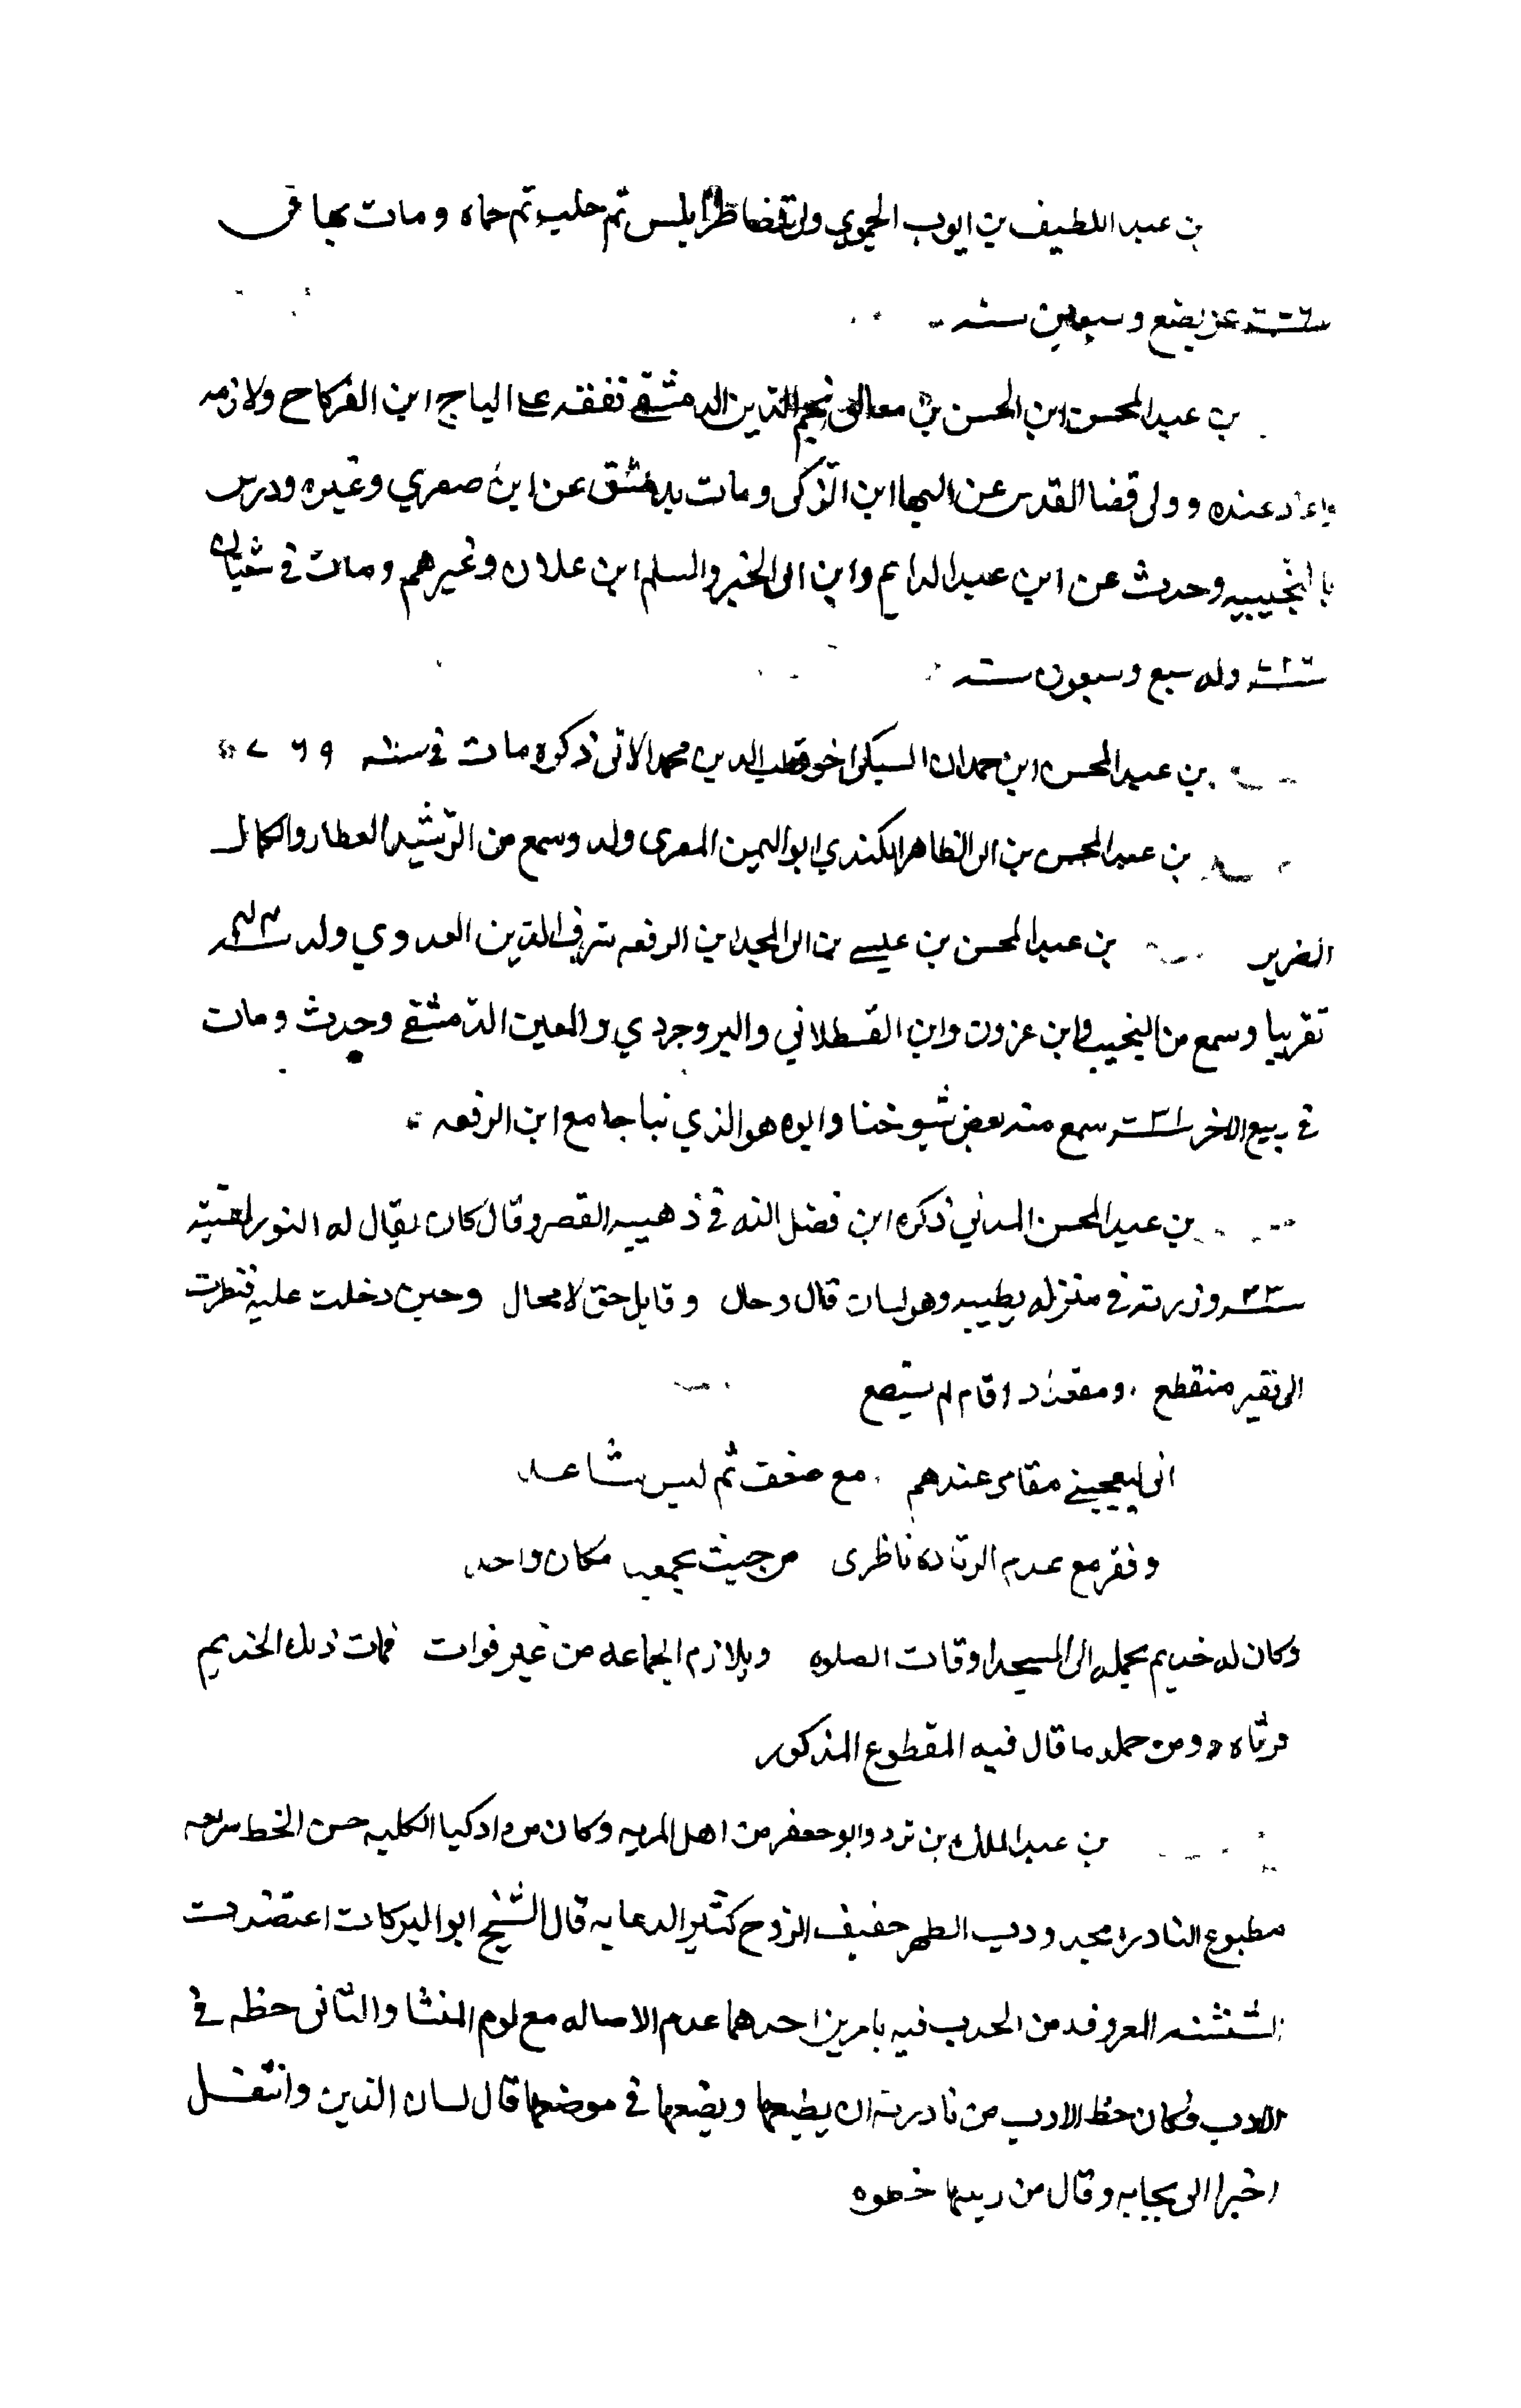 بن عبد اللطيف بن ايوب الحموي ولى قضا طرابلس ثم حلب ثم حماه ومات بها في
سنة عن بضع وسبعين سنه
بن عبد المحسن ابن الحسن بن معالى نجم الدين الدمشقي تفقه على التاج ابن الفركاح ولازمه
واعاد عنده وولى قضا القدس عن البها ابن الزكى ومات بدمشق عن ابن صصري وغيره ودرس
بالنجيبيه وحدث عن ابن عبد الدايم وابن ابى الخير والمسلم ابن علان وغيرهم ومات في شعبان
سنة وله سبع وسبعون سنه
بن عبد المحسن ابن حمدان السبكى اخو قطب الدين محمد الاتى ذكره مات في سنه ٧٦٩
بن عبد المحسن بن ابى الطاهر الكندي ابو اليمن المصرى ولد وسمع من الرشيد العطار والكمال
الضرير بن عبد المحسن بن عيسى بن ابى المجد ابن الرفعه شرف الدين العدوي ولد سنة
تقريبا وسمع من النجيب وابن عزون وابن القسطلاني والبروجردي والمعين الدمشقي وحدث ومات
في ربيع الاخر سنة سمع منه بعض شيوخنا وابوه هو الذي بنا جامع ابن الرفعه
بن عبد المحسن المدني ذكره ابن فضل الله في ذهبية القصر وقال كان يقال له النور لقيته
سنة ٣٣ وزرته في منزله بطيبه وهو لسان قال وحال وقايل حق لا محال وحين دخلت عليه نظرت
الى فقير منقطع ومقعد لو قام لم يستطع
انى ليعجبنى مقامى عندهم مع ضعف ثم ليس بساعد
وفقر مع عدم الرقاد ناظرى من حيث يجمعنا مكان واحد
وكان له خديم يحمله الى المسجد اوقات الصلوه ويلازم الجماعه من غير فوات فمات ذلك الخديم
فرثاه ومن جمله ما قال فيه المقطوع المذكور
بن عبد الملك بن ابو جعفر من اهل المريه وكان من اذكيا الكلبه حسن الخط سريعه
مطبوع النادره محدودب الظهر خفيف الروح كثير الدعابه قال الشيخ ابو البركات اعتضدت
الشنشنه المعروفه من الحدب فيه بامرين احدهما عدم الاصاله مع لوم المنشا والثانى حظه في
الادب وكان حظ الادب من نادرته ان يطبعها ويضعها في موضعها قال لسان الدين وانتقل
اخيرا الى بجايه وقال من ريبها خطوه